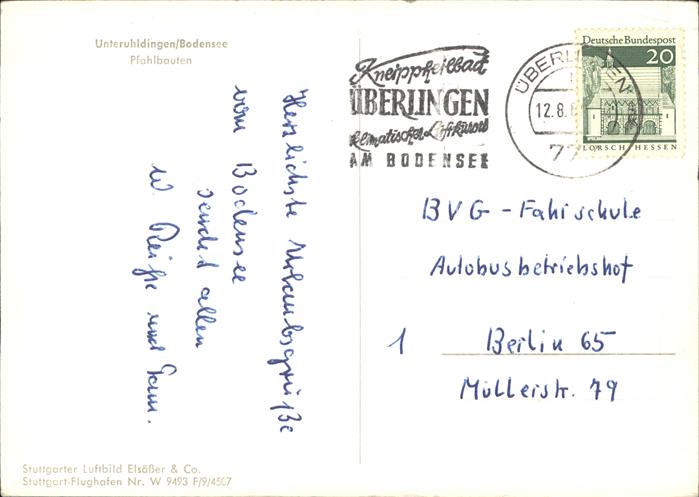 Unteruhldingen/Bodensee
Pfahlbauten
Herzlichste Urlaubsgrüße
vom Bodensee
sendet allen
W. Reiße und Fam.
Stuttgarter Luftbild Elsäßer & Co.
Stuttgart-Flughafen Nr. W 9493 F/9/4507
Kneippheilbad
ÜBERLINGEN
klimatischer Luftkurort
AM BODENSEE
ÜBERLINGEN
12.8.
Deutsche Bundespost
20
LORSCH/HESSEN
BVG - Fahrschule
Autobusbetriebshof
1 Berlin 65
Müllerstr. 79